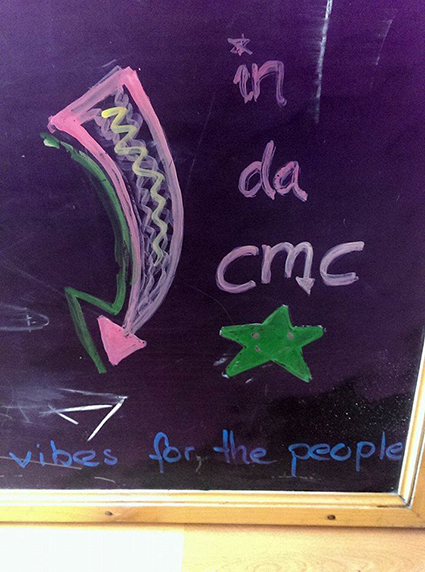 in
da
cmc
vibes for the people